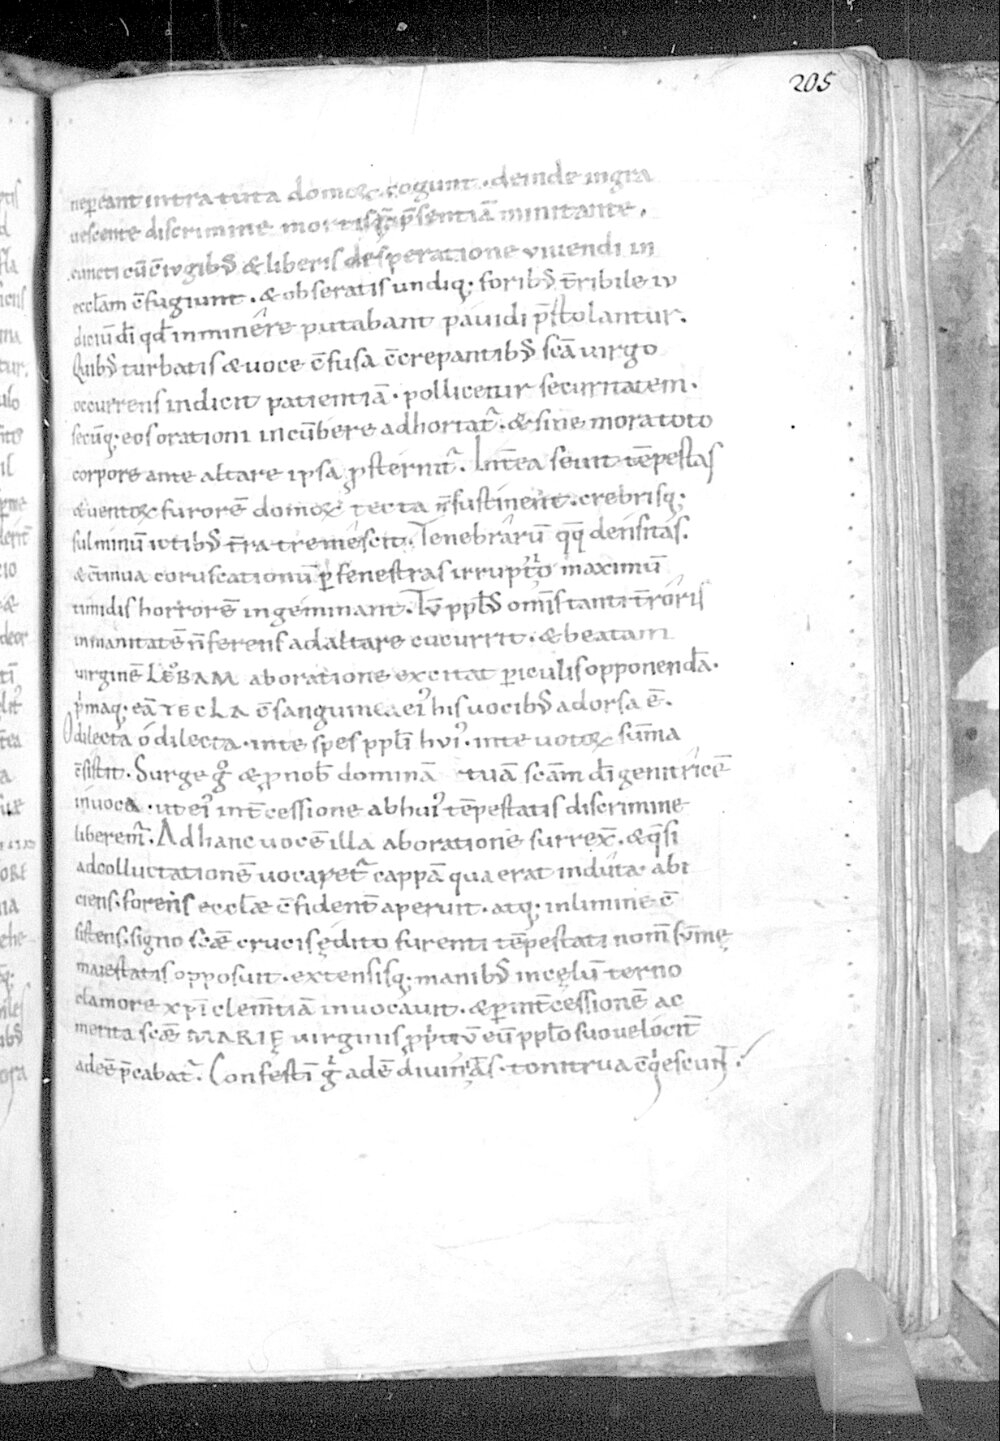 205
ne ꝑeant intra tuta domoꝝ cogunt · deinde ingra
uescente discrimine mortisq; p̄sentiā minitante,
cuncti cū c̄iugibꝰ & liberis desperatione viuendi in
eccl̄am c̄fugiunt · & obseratis undiq; foribꝰ t̄ribile iu
diciū dī qd̄ inminēre putabant pauidi p̄stolantur.
Quibꝰ turbatis & uoce c̄fusa c̄crepantibꝰ sc̄a uirgo
occurrens indicit patientiā · pollicetur securitatem ·
secūq; eos orationi incūbere adhortat᷑ · & sine mora toto
corpore ante altare ipsa ꝓsternit᷑. Int̄ea seuit tēpestas
& uentoꝝ furorē domoꝝ tecta n̄ sustinent · crebrisq;
fulminū ictibꝰ t̄ra tremescit. Tenebrarū qq̄ densitas.
& c̄tinua coruscationū ꝑ fenestras irruptio maximū
timidis horrorē ingeminant. Tū ppl̄s om̄is tanti t̄roris
inmanitatē n̄ ferens ad altare cucurrit · & beatam
uirginē LEOBAM ab oratione excitat periculis opponendā ·
p̄maq; eā TECLA c̄sanguinea ei᷒ his uocibꝰ adorsa ē.
O dilecta ó dilecta · in te spes ppl̄i hui᷒ · in te uotoꝝ sum̄a
c̄sistit. Surge gͦ & ꝓ nob̄ dominā tuā scām dī genitricē
inuoca · ut ei᷒ int̄cessione ab hui᷒ tēpestatis discrimine
liberem᷑. Ad hanc uocē illa ab oratione surrex̄ · & q̄si
ad colluctationē uocaret᷑ cappā qua erat induta · abi
ciens · fores eccl̄æ c̄fident̄ aperuit · atq; in limine c̄
sistens · signo scǣ crucis ędito furenti tēpestati nom̄ sūmę
maiestatis opposuit · extensisq; manibꝰ in cęlū terno
clamore xp̄i clem̄tiā inuocauit · & ꝑ int̄cessionē ac
merita scǣ MARIĘ uirginis ꝓpitiū eū pplo̅ suo uelocit̄
adeē p̄cabat᷑. Confestī g̊ adē diuinitas · tonitrua c̄q̇escunt.